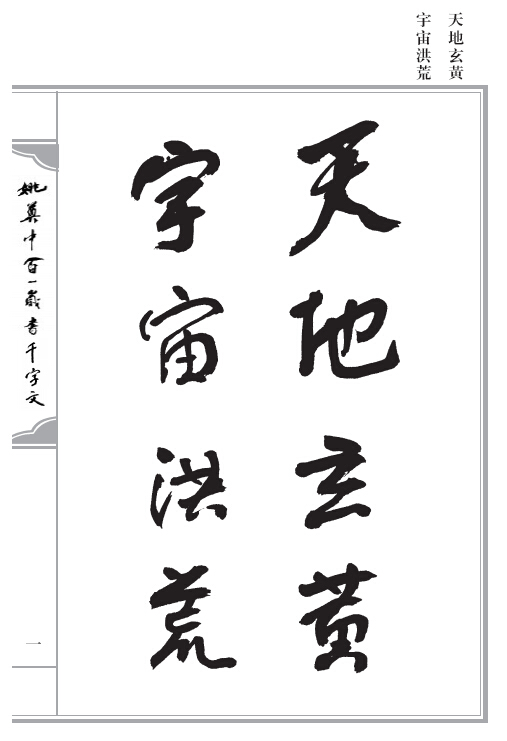 天地玄黃
宇宙洪荒
天地玄黃
宇宙洪荒
姚奠中百一歲書千字文
一